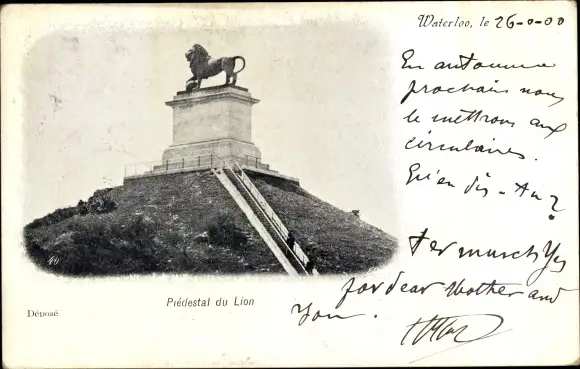 Waterloo, le 26-0-00
En automne
prochain nous
le mettrons aux
circulaires.
Qu'en dis-tu?
for dear Mother and
You.
49
Piédestal du Lion
Déposé